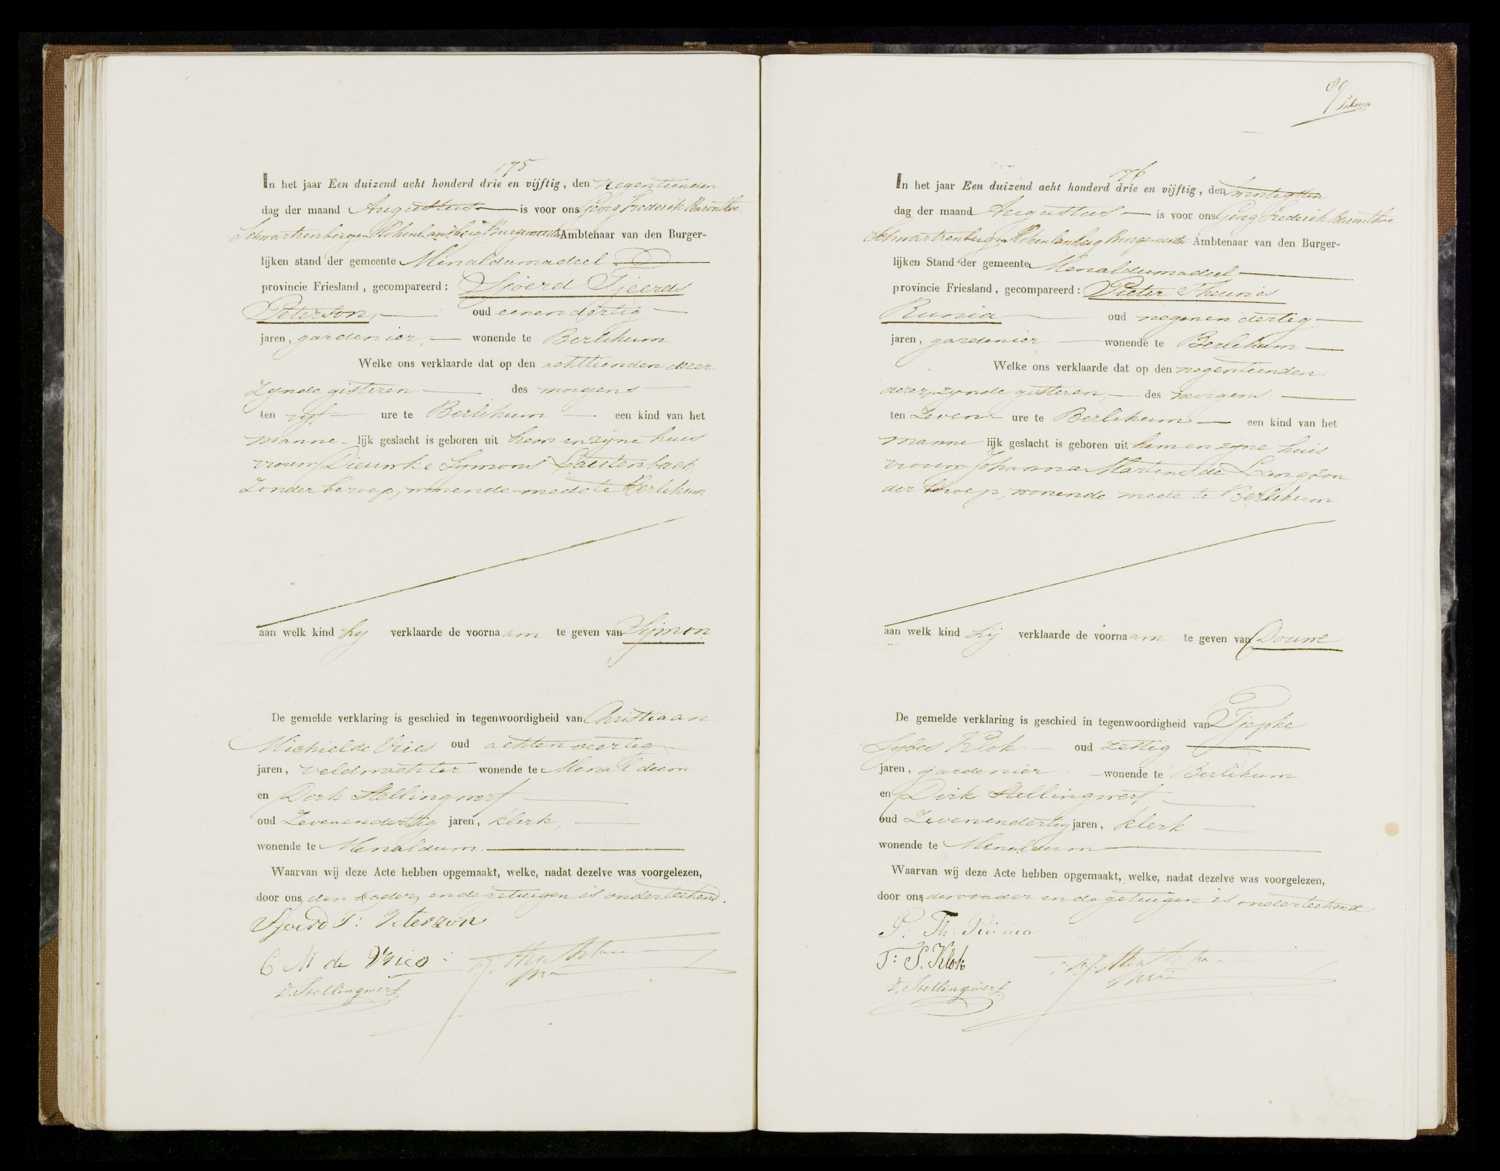 175
In het jaar Een duizend acht honderd drie en vijftig, den negentienden
dag der maand Augustus is voor ons Georg Frederik Baron thoe
Schwartzenberg en Hohenlansberg Burgemeester Ambtenaar van den Burger-
lijken stand der gemeente Menaldumadeel
provincie Friesland, gecompareerd: Sjoerd Tjeerds
Peterson, oud eenendertig
jaren, gardenier, wonende te Berlikum
Welke ons verklaarde dat op den achttienden dezer
zynde gisteren des morgens
ten vyf ure te Berlikum een kind van het
manne- lijk geslacht is geboren uit hem en zyne huis
vrouw Dieuwke Symons
zonder beroep, wonende mede te Berlikum
aan welk kind hy verklaarde de voornaam te geven van Symon
De gemelde verklaring is geschied in tegenwoordigheid van Christiaan
Michiel de Vries oud achtenveertig
jaren, veldwachter wonende te Menaldum
en Dirk Stellingwerf
oud zevenendertig jaren, klerk
wonende te Menaldum.
Waarvan wij deze Acte hebben opgemaakt, welke, nadat dezelve was voorgelezen,
door ons, den vader, en de getuigen is onderteekend.
Sjoerd T: Peterzon
C M de Vries
D. Stellingwerf
89
176
In het jaar Een duizend acht honderd drie en vijftig, den twintigsten
dag der maand Augustus is voor ons Georg Frederik Baron thoe
Schwartzenberg en Hohenlansberg Burgemeester Ambtenaar van den Burger-
lijken Stand der gemeente Menaldumadeel
provincie Friesland, gecompareerd: Pieter Theunis
Runia oud negenen dertig
jaren, gardenier wonende te Berlikum
Welke ons verklaarde dat op den negentienden
dezer, zynde gisteren des morgens
ten zeven ure te Berlikum een kind van het
manne lijk geslacht is geboren uit hem en zyne huis
vrouw Johanna Martens de Lang, zon
der beroep, wonende mede te Berlikum
aan welk kind hij verklaarde de voornaam te geven van Douwe
De gemelde verklaring is geschied in tegenwoordigheid van Tjepke
Klok oud zestig
jaren, gardenier wonende te Berlikum
en Dirk Stellingwerf
oud zevenendertig jaren, klerk
wonende te Menaldum
Waarvan wij deze Acte hebben opgemaakt, welke, nadat dezelve was voorgelezen,
door ons, den vader en de getuigen is onderteekend
P. Th. Runia
T: S. Klok
D. Stellingwerf